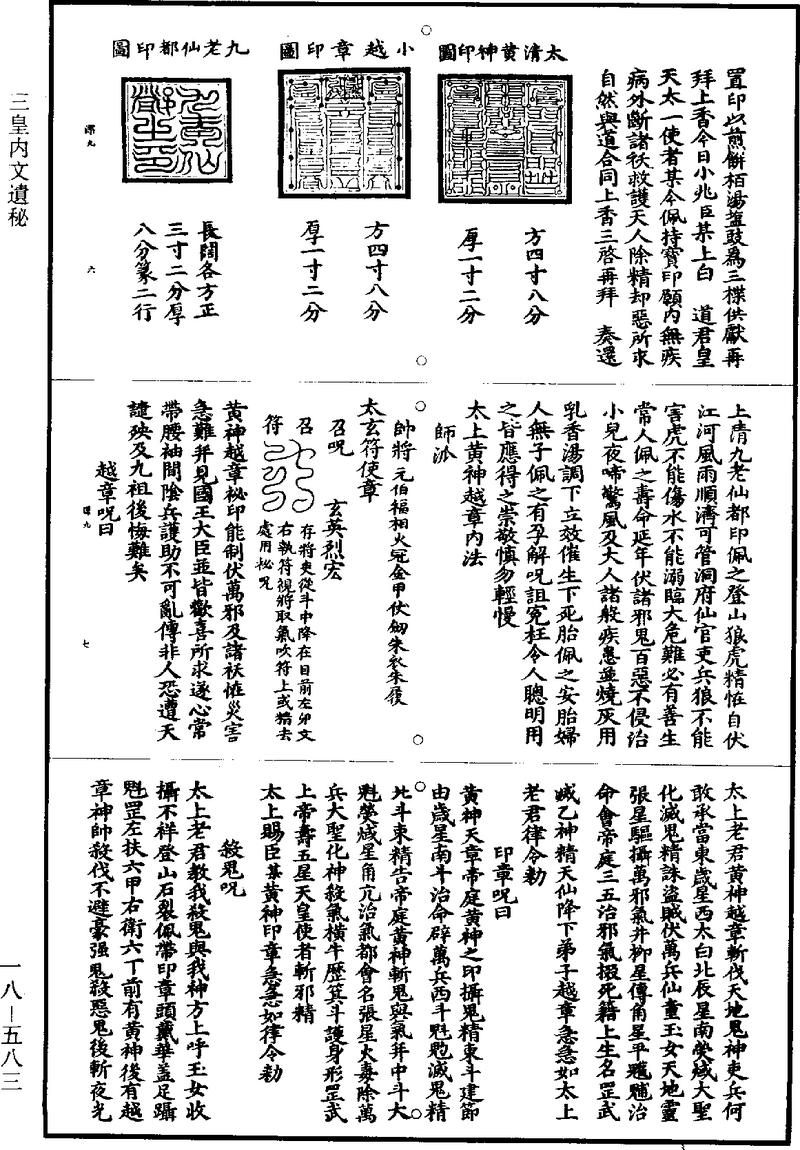 三皇内文遺秘
置印以煎餅栢湯塩豉爲三楪供獻再
拜上香今日小兆臣某上白　道君皇
天太一使者某今佩持寳印願内無疾
病外斷諸祅救護天人除精却惡所求
自然與道合同上香三啓再拜　奏還
太清黄神印圖
方四寸八分
厚一寸二分
小越章印圖
方四寸八分
厚一寸二分
九老仙都印圖
長闊各方正
三寸二分厚
八分篆二行
六
上清九老仙都印佩之登山狼虎精恠自伏
江河風雨順濟可管洞府仙官吏兵狼不能
害虎不能傷水不能溺臨大危難必有善生
常人佩之壽命延年伏諸邪鬼百惡不侵治
小兒夜啼驚風及大人諸般疾患並燒灰用
乳香湯調下立效催生下死胎佩之安胎婦
人無子佩之有孕解呪詛冤枉令人聰明用
之皆應得之崇敬慎勿輕慢
太上黄神越章内法
師派
帥將 元伯福相火冠金甲伏劒朱衣朱履
太玄符使章
召呪　　玄英烈宏
召
符
存將吏從斗中降在目前左卯文
右執符視將取氣吹符上或精去
處用秘呪
黄神越章祕印能制伏萬邪及諸祅恠災害
急難并見國王大臣並皆歡喜所求遂心常
帶腰袖間陰兵護助不可亂傳非人恐遭天
譴殃及九祖後悔難矣
越章呪曰
七
太上老君黄神越章斬伐天地鬼神吏兵何
敢承當東歲星西太白北辰星南熒惑大聖
化滅鬼精誅盗賊伏萬兵仙童玉女天地靈
張星驅攝萬邪氣井柳星傳角星平魑魅治
命會帝庭三五治邪氣掇死籍上生名罡武
滅乙神精天仙降下弟子越章急急如太上
老君律令勑
印章呪曰
黄神天章帝庭黄神之印攝鬼精東斗建節
由歲星南斗治命辟萬兵西斗魁魒滅鬼精
北斗束精告帝庭黄神斬鬼與氣并中斗大
魁熒惑星角亢治氣都會名張星火毒除萬
兵大聖化神殺氣横牛歷箕斗護身形罡武
上帝壽五星天皇使者斬邪精
太上賜臣某黄神印章急急如律令勑
殺鬼呪
太上老君教我殺鬼與我神方上呼玉女收
攝不祥登山石裂佩帶印章頭戴華蓋足躡
魁罡左扶六甲右衛六丁前有黄神後有越
章神帥殺伐不避豪强鬼殺惡鬼後斬夜光
一八—五八三